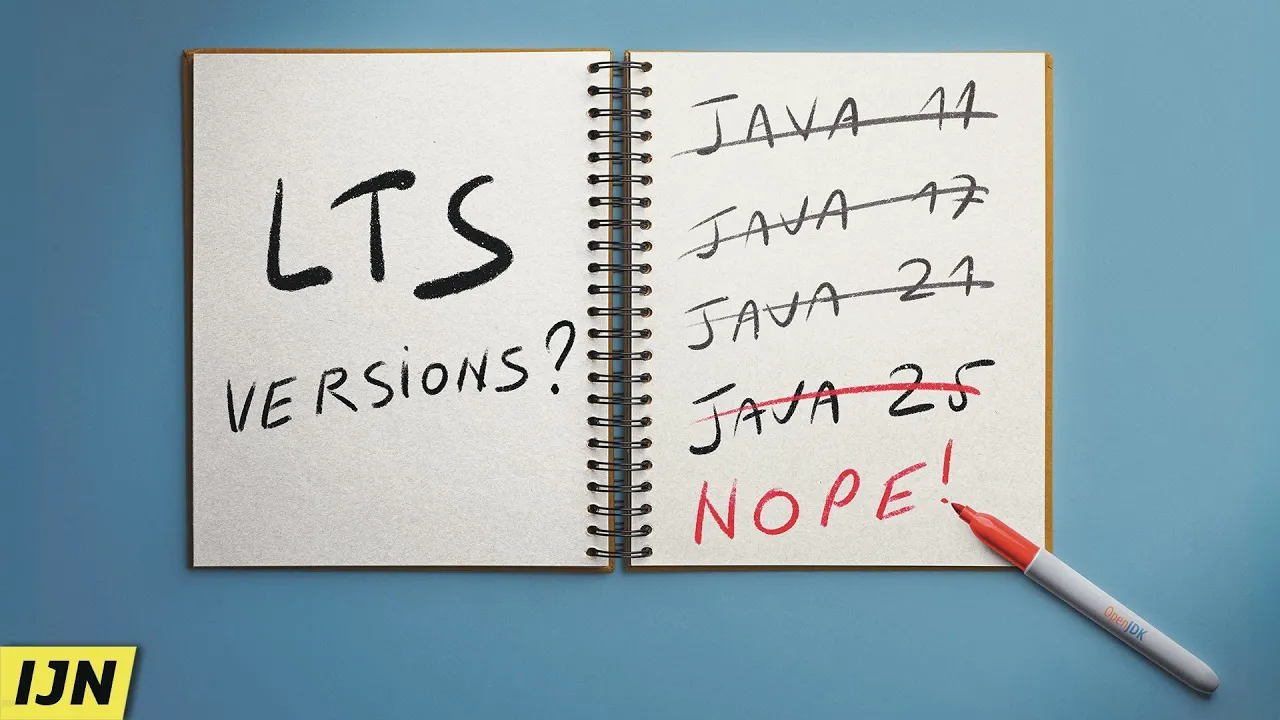 LTS
VERSiONS?
JAVA 11
JAVA 17
JAVA 21
JAVA 25
NOPE!
OpenJDK
IJN